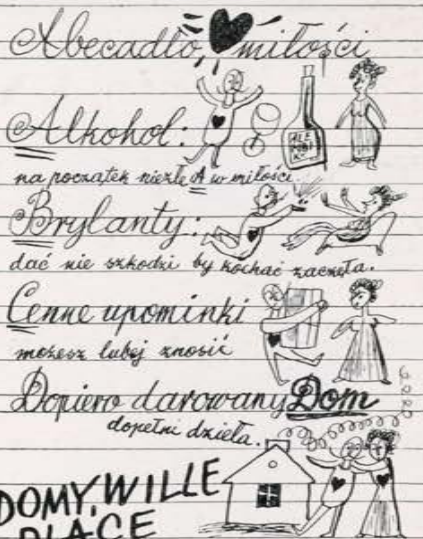 Abecadło miłości
Alkohol:
na początek niezłe A w miłości.
Brylanty:
dać nie szkodzi by kochać zaczęła.
Cenne upominki
możesz lubej znosić
Dopiero darowany Dom
dopełni dzieła.
DOMY, WILLE
PLACE